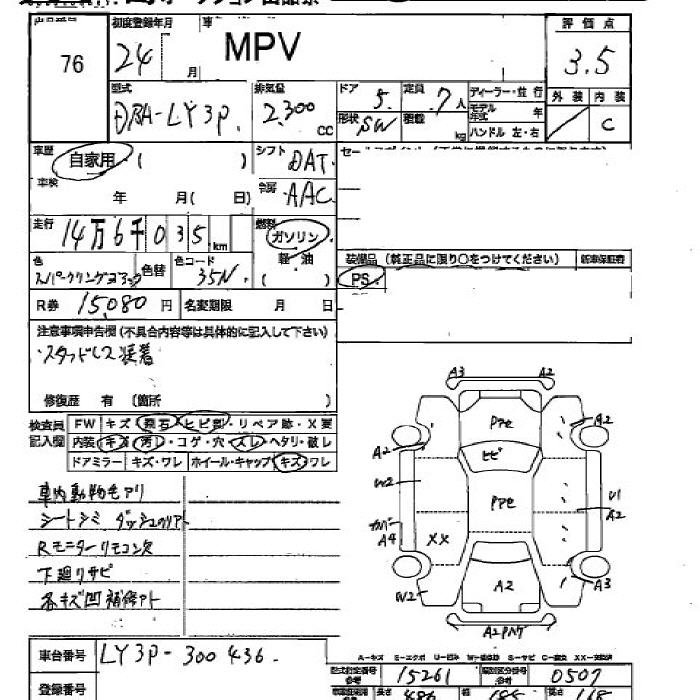 76
初度登録年月
24 月
車
MPV
評価点
3.5
型式
DBA-LY3P.
排気量
2.300 cc
ドア
5.
定員
7人
形状
SW
積載
kg
ディーラー・並行
モデル年式 年
ハンドル 左・右
外装 内装
C
車歴
自家用 ( )
車検
年 月( 日)
シフト
DAT
冷房
AAC
走行
14万6千035km
燃料
ガソリン
軽・油
( )
色
スパークリングブラック
色替
色コード
35N.
装備品 (純正品に限り○をつけてください)
新車保証書
PS
R券 15080円
名変期限 月 日
注意事項申告欄(不具合内容等は具体的に記入して下さい)
スタッドレス装着
修復歴 有 (箇所 )
検査員記入欄
FW キズ・飛石・ヒビ割・リペア跡・X要
内装 キズ・汚レ・コゲ・穴・スレ・ヘタリ・破レ
ドアミラー キズ・ワレ ホイール・キャップ キズ・ワレ
車内動物毛アリ
シートシミ
Rモニターリモコン欠
下廻リサビ
各キズ凹補修アト
A3 A2
A2 A2
ヒビ
W2
U1
A2
カバー
A4
XX
W2
A2
A3
A2
A-キズ
車台番号 LY3P-300436.
登録番号
型式指定番号 15261
類別区分番号 0507
長さ 486 幅 185 高さ 168